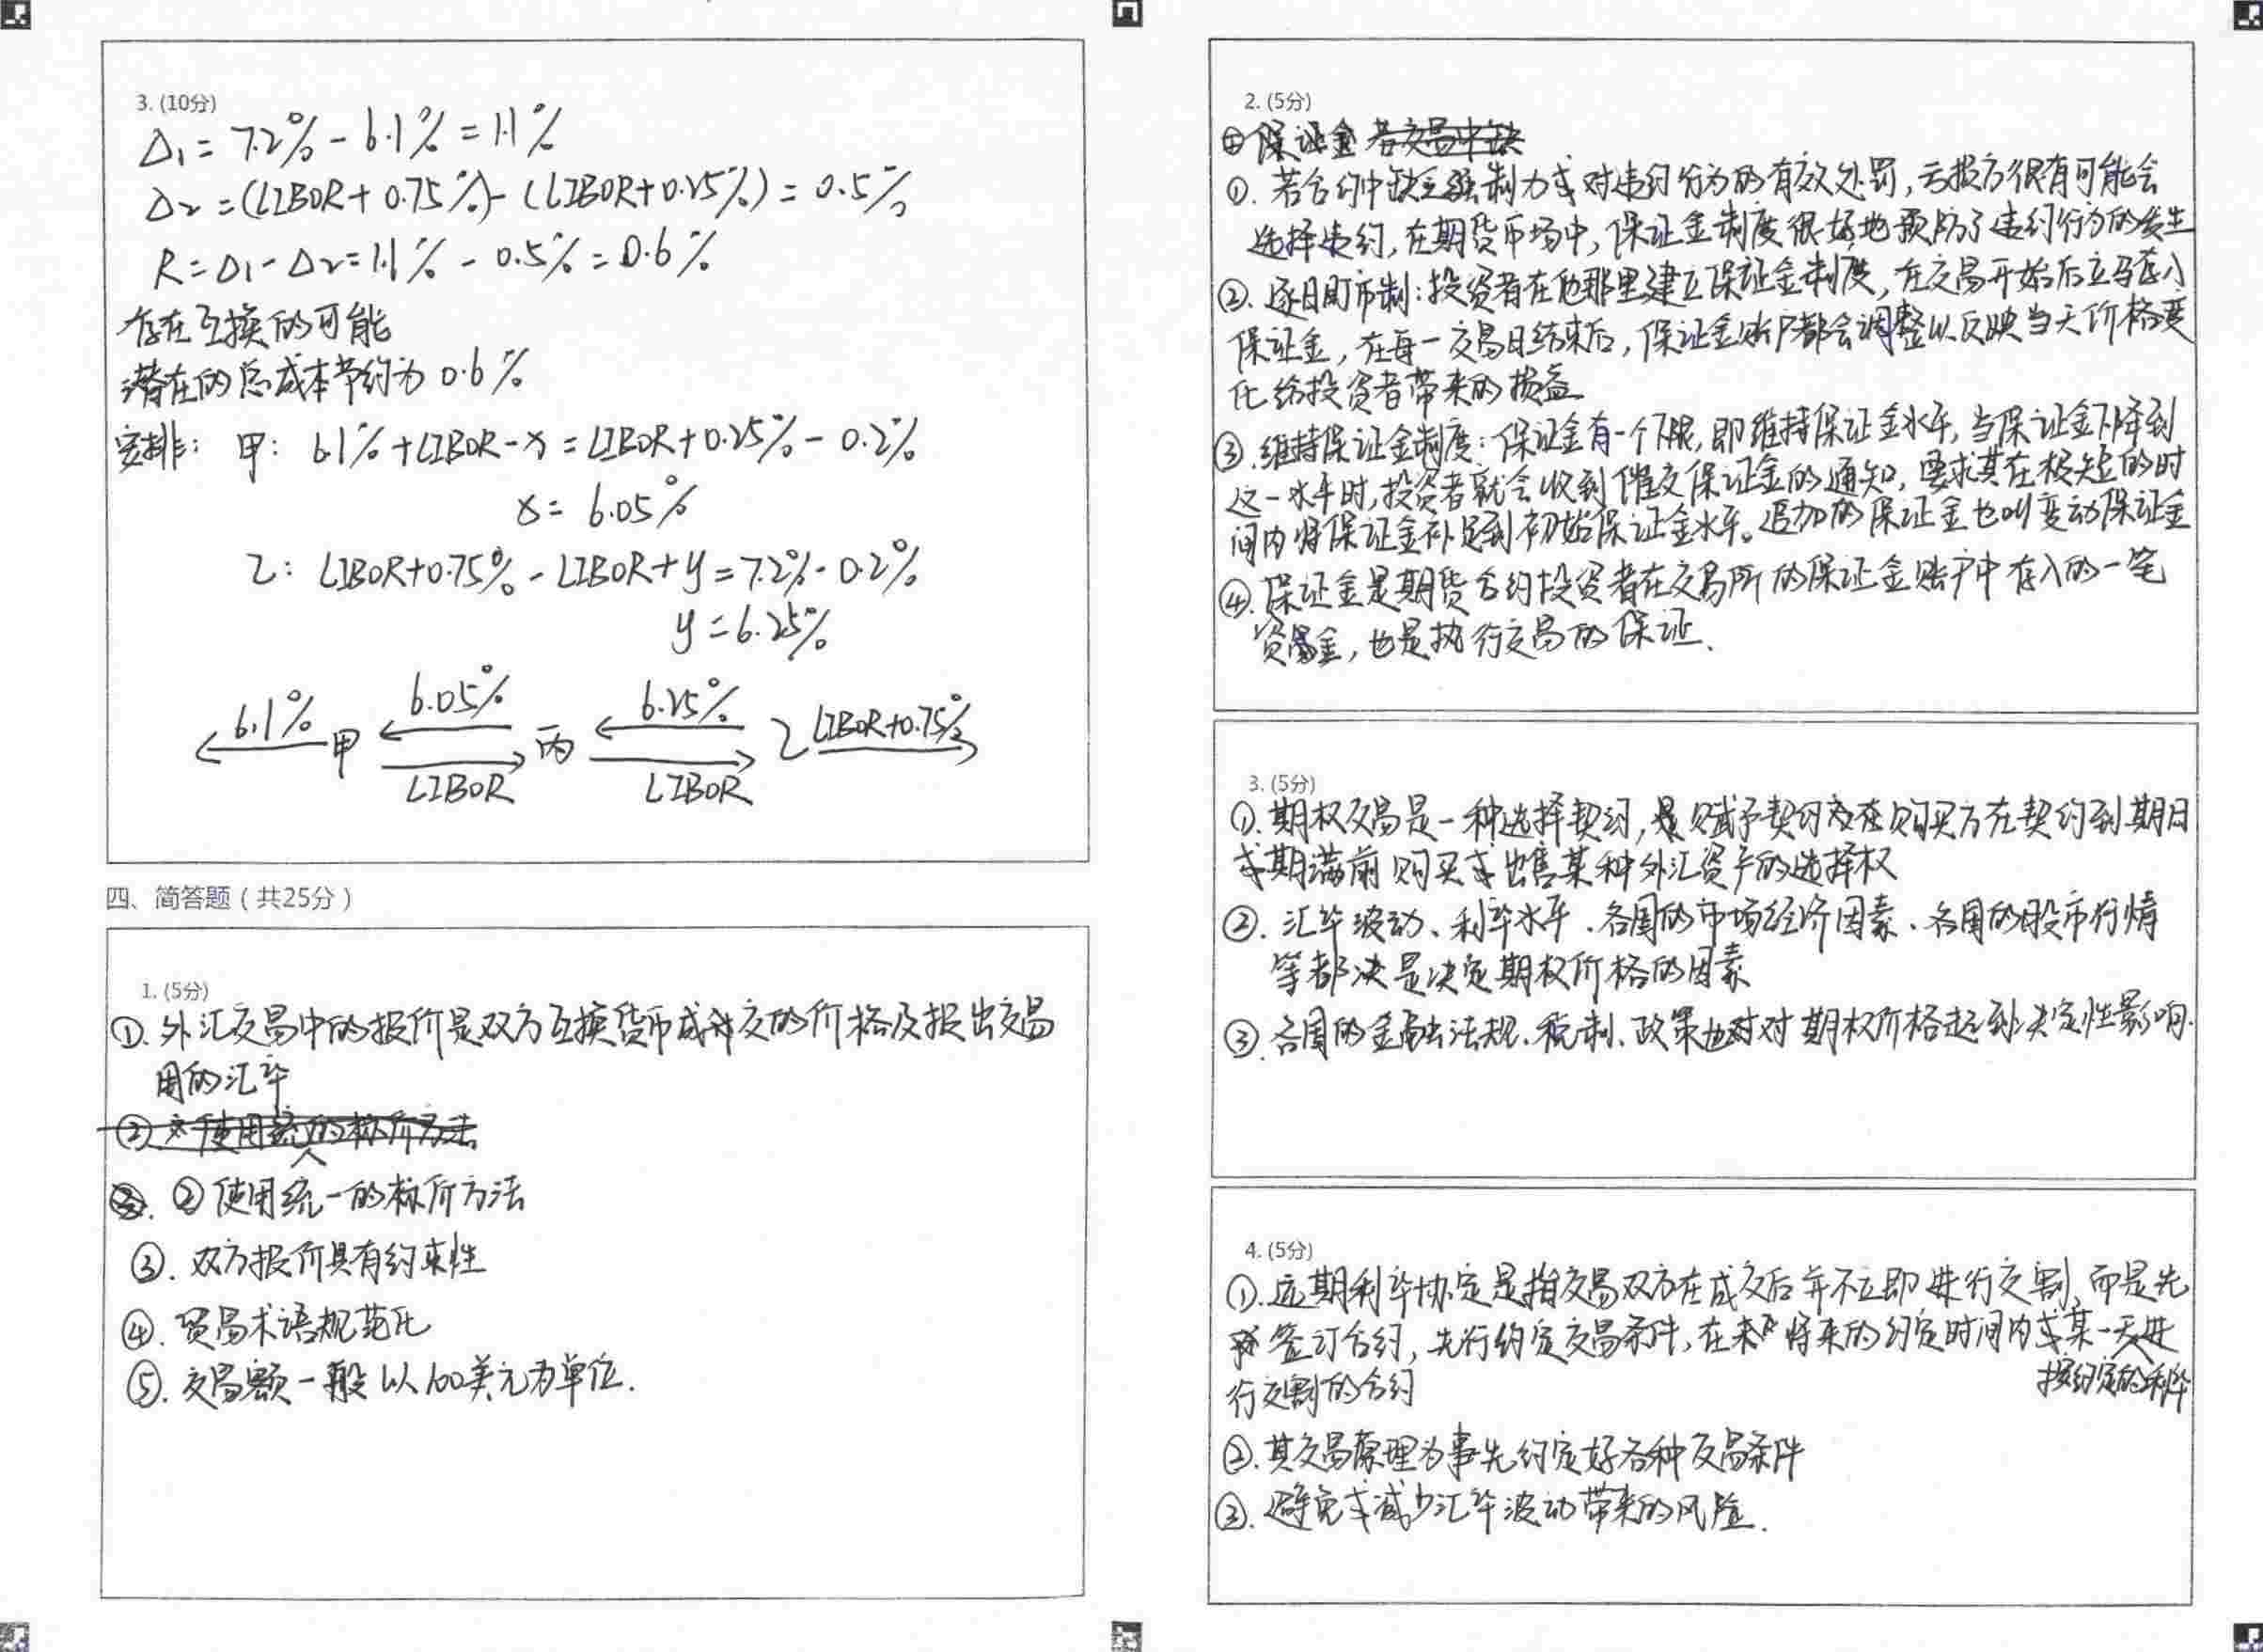 3. (10分)
Δ₁ = 7.2% - 6.1% = 1.1%
Δ₂ = (LIBOR + 0.75%) - (LIBOR + 0.25%) = 0.5%
R = Δ₁ - Δ₂ = 1.1% - 0.5% = 0.6%
存在互换的可能
潜在的总成本节约为 0.6%
安排： 甲： 6.1% + LIBOR - x = LIBOR + 0.25% - 0.2%
x = 6.05%
乙： LIBOR + 0.75% - LIBOR + y = 7.2% - 0.2%
y = 6.25%
6.1% 甲 6.05% LIBOR 丙 6.25% LIBOR 乙 LIBOR+0.75%
四、简答题（共25分）
1. (5分)
①. 外汇交易中的报价是双方互换货币成交的价格及报出交易
用的汇率
② 使用统一的标价方法
② 使用统一的标价方法
③. 双方报价具有约束性
④. 贸易术语规范化
⑤. 交易额一般以100美元为单位.
2. (5分)
① 保证金 若交易中缺
①. 若合约中缺乏强制力或对违约行为的有效处罚，亏损方很有可能会
选择违约，在期货市场中，保证金制度很好地预防了违约行为的发生
②. 逐日盯市制：投资者在他那里建立保证金制度，在交易开始后立马存入
保证金，在每一交易日结束后，保证金账户都会调整以反映当天价格变
化给投资者带来的损益
③. 维持保证金制度：保证金有一个下限，即维持保证金水平，当保证金下降到
这一水平时，投资者就会收到催交保证金的通知，要求其在极短的时
间内将保证金补足到初始保证金水平。追加的保证金也叫变动保证金
④. 保证金是期货合约投资者在交易所的保证金账户中存入的一笔
资金，也是执行交易的保证.
3. (5分)
①. 期权交易是一种选择契约，是赋予契约购买方在契约到期日
或期满前购买或出售某种外汇资产的选择权
②. 汇率波动、利率水平、各国的市场经济因素、各国的股市行情
等都决是决定期权价格的因素
③. 各国的金融法规、税制、政策也对对期权价格起到决定性影响.
4. (5分)
①. 远期利率协定是指交易双方在成交后并不立即进行交割，而是先
签订合约，先行约定交易条件，在未来将来的约定时间内或某一天进
按约定的利率
行交割的合约
②. 其交易原理为事先约定好各种交易条件
③. 避免或减少汇率波动带来的风险.